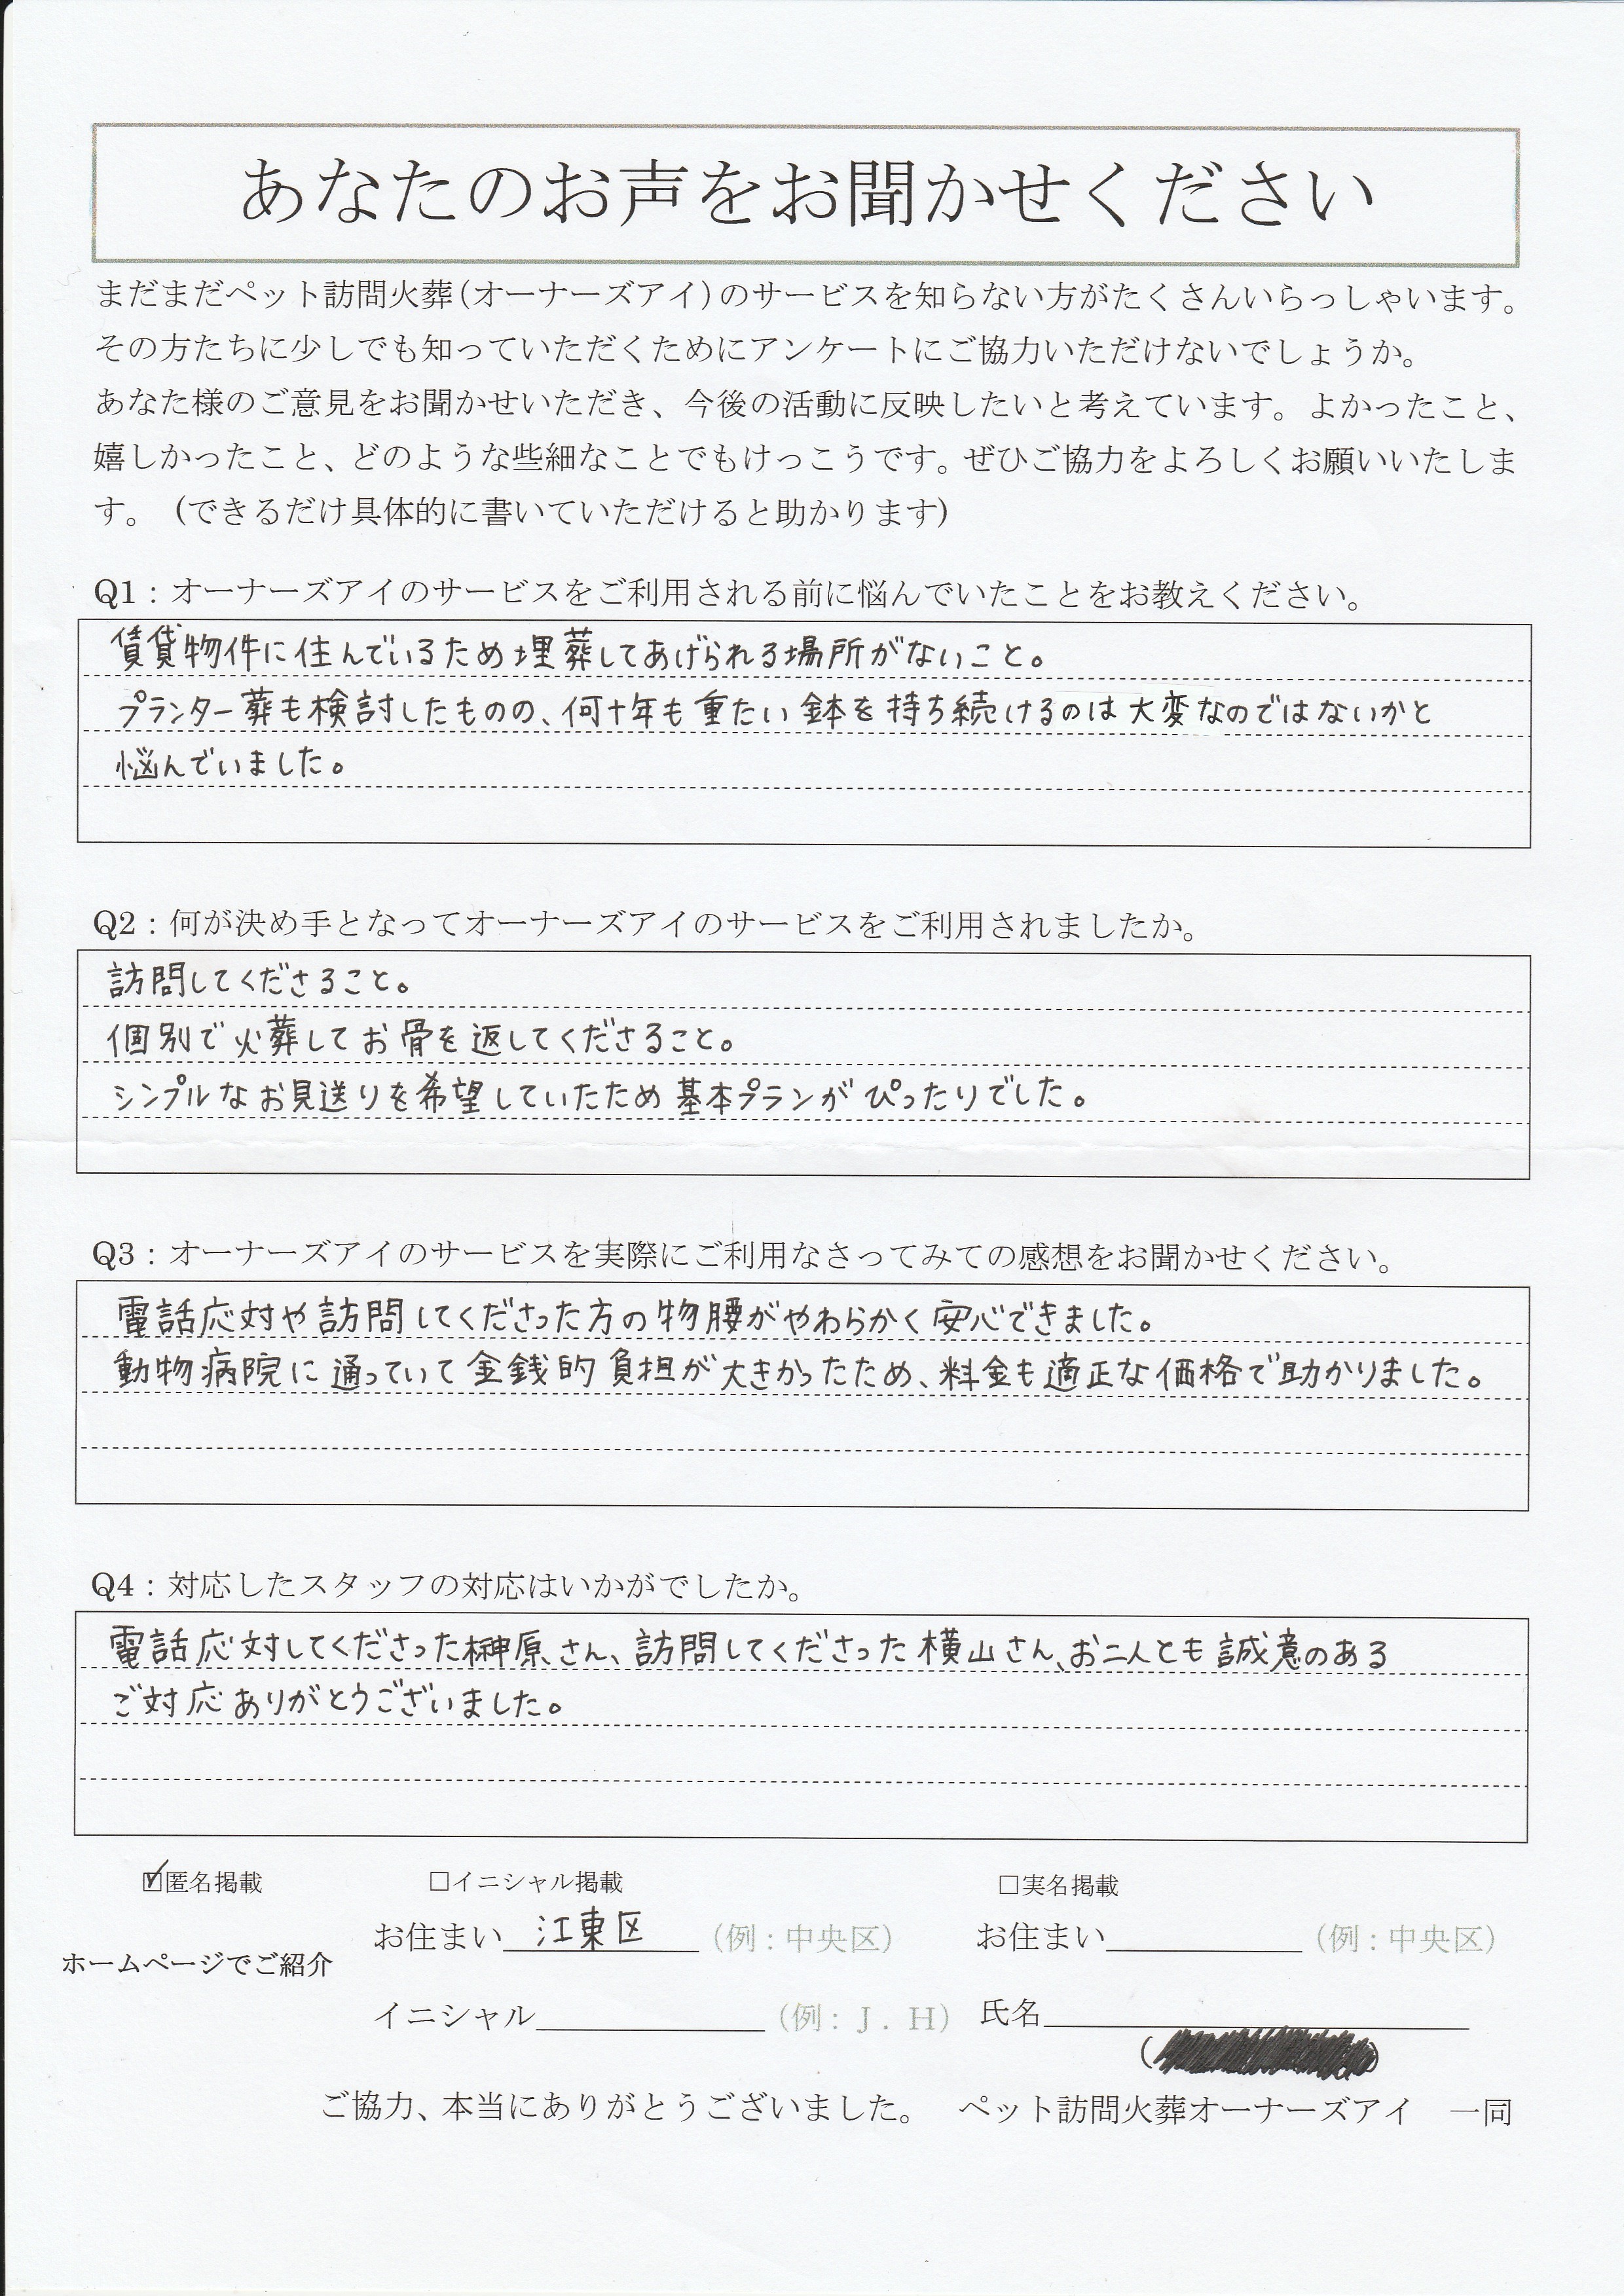 あなたのお声をお聞かせください
まだまだペット訪問火葬(オーナーズアイ)のサービスを知らない方がたくさんいらっしゃいます。
その方たちに少しでも知っていただくためにアンケートにご協力いただけないでしょうか。
あなた様のご意見をお聞かせいただき、今後の活動に反映したいと考えています。よかったこと、
嬉しかったこと、どのような些細なことでもけっこうです。ぜひご協力をよろしくお願いいたしま
す。（できるだけ具体的に書いていただけると助かります）
Q1：オーナーズアイのサービスをご利用される前に悩んでいたことをお教えください。
賃貸物件に住んでいるため埋葬してあげられる場所がないこと。
プランター葬も検討したものの、何十年も重たい鉢を持ち続けるのは大変なのではないかと
悩んでいました。
Q2：何が決め手となってオーナーズアイのサービスをご利用されましたか。
訪問してくださること。
個別で火葬してお骨を返してくださること。
シンプルなお見送りを希望していたため基本プランがぴったりでした。
Q3：オーナーズアイのサービスを実際にご利用なさってみての感想をお聞かせください。
電話応対や訪問してくださった方の物腰がやわらかく安心できました。
動物病院に通っていて金銭的負担が大きかったため、料金も適正な価格で助かりました。
Q4：対応したスタッフの対応はいかがでしたか。
電話応対してくださった榊原さん、訪問してくださった横山さん、お二人とも誠意のある
ご対応ありがとうございました。
☑匿名掲載 □イニシャル掲載 □実名掲載
お住まい 江東区 （例：中央区） お住まい （例：中央区）
ホームページでご紹介
イニシャル （例：J．H） 氏名
ご協力、本当にありがとうございました。 ペット訪問火葬オーナーズアイ 一同